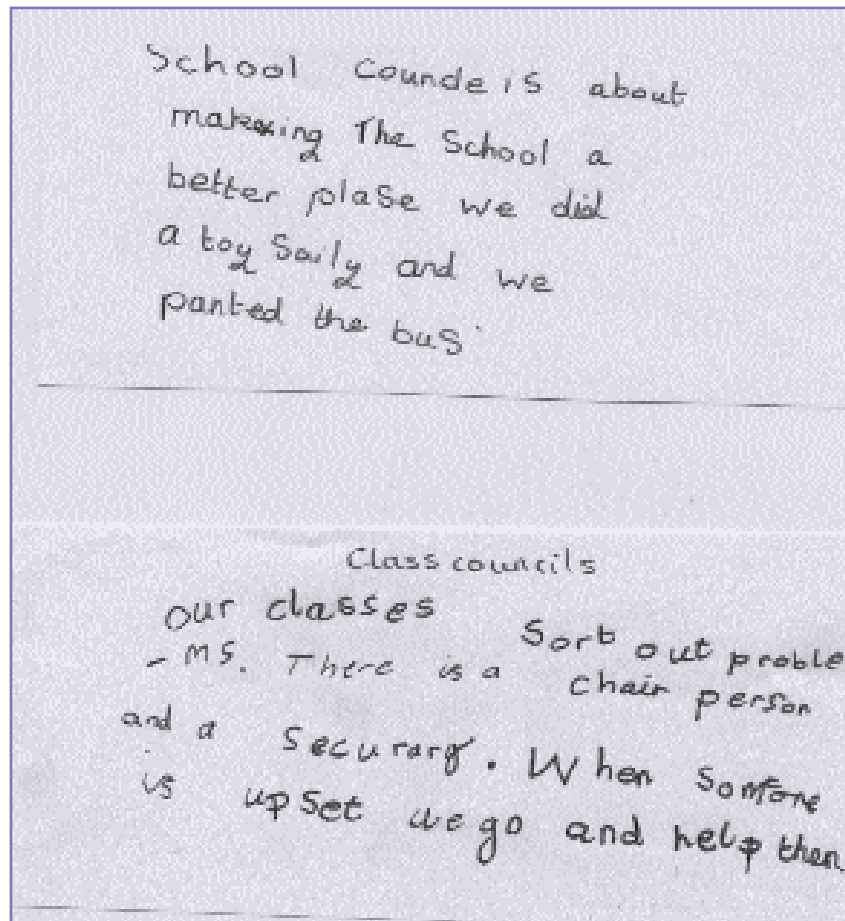 School Counde is about
makeing The School a
better plase we did
a toy Saily and we
panted the bus
Class councils
our classes Sort out proble
- ms. There is a chair person
and a Secururg. When Somfone
is upset we go and help them